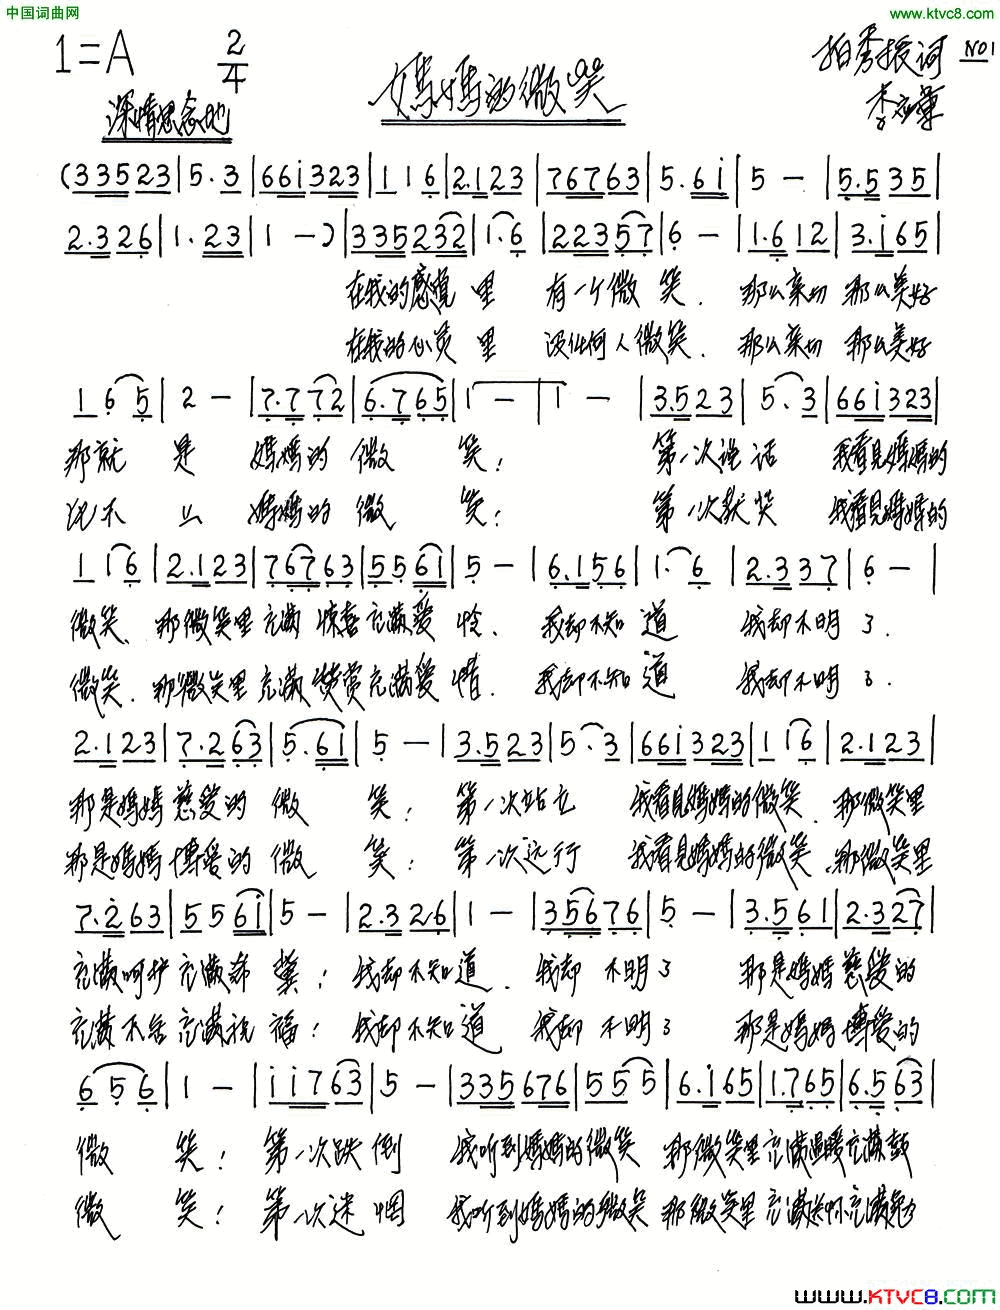 中国词曲网
www.ktvc8.com
1=A 2/4
妈妈的微笑
柏秀振词 NO1
深情思念地
李 章
(33523|5.3|661323|116|2.123|76763|5.61|5-|5.535|
2.326|1.23|1-)|335232|1.6|22357|6-|1.612|3.165|
在我的感觉里 有一个微笑. 那么亲切 那么美好
在我的心灵里 没任何人微笑. 那么亲切 那么美好
165|2-|7.772|6.765|1-|1-|3.523|5.3|661323|
那就是 妈妈的微 笑; 第一次说话 我看见妈妈的
比不上 妈妈的微 笑; 第一次获奖 我看见妈妈的
116|2.123|76763|5561|5-|6.156|1.6|2.337|6-|
微笑. 那微笑里充满惊喜充满爱怜. 我却不知道 我却不明了.
微笑. 那微笑里充满赞赏充满爱惜. 我却不知道 我却不明了.
2.123|7.263|5.61|5-|3.523|5.3|661323|116|2.123|
那是妈妈慈爱的微 笑; 第一次站立 我看见妈妈的微笑. 那微笑里
那是妈妈博爱的微 笑; 第一次远行 我看见妈妈的微笑. 那微笑里
7.263|5561|5-|2.326|1-|35676|5-|3.561|2.327|
充满呵护充满希冀; 我却不知道. 我却不明了 那是妈妈慈爱的
充满不舍充满祝福; 我却不知道 我却不明了 那是妈妈博爱的
656|1-|11763|5-|335676|555|6.165|1.765|6.563|
微 笑; 第一次跌倒 我听到妈妈的微笑 那微笑里充满温暖充满鼓
微 笑; 第一次迷惘 我听到妈妈的微笑 那微笑里充满关怀充满勉
www.KTVC8.com